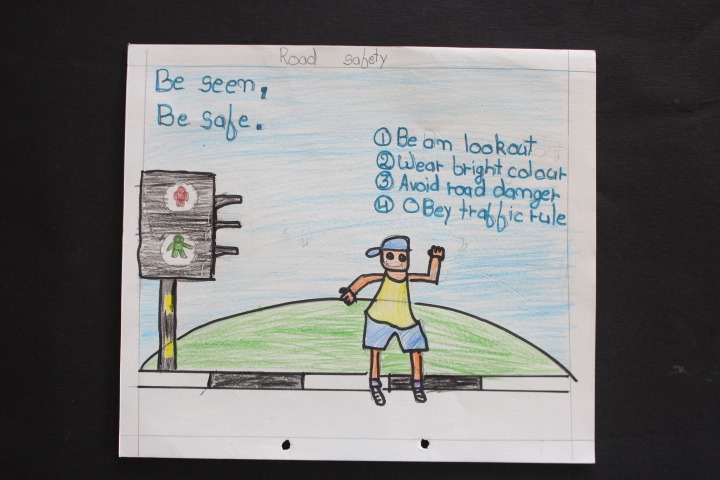 Road safety
Be seen,
Be safe.
① Be on lookout
② Wear bright colour
③ Avoid road danger
④ OBey traffic rule